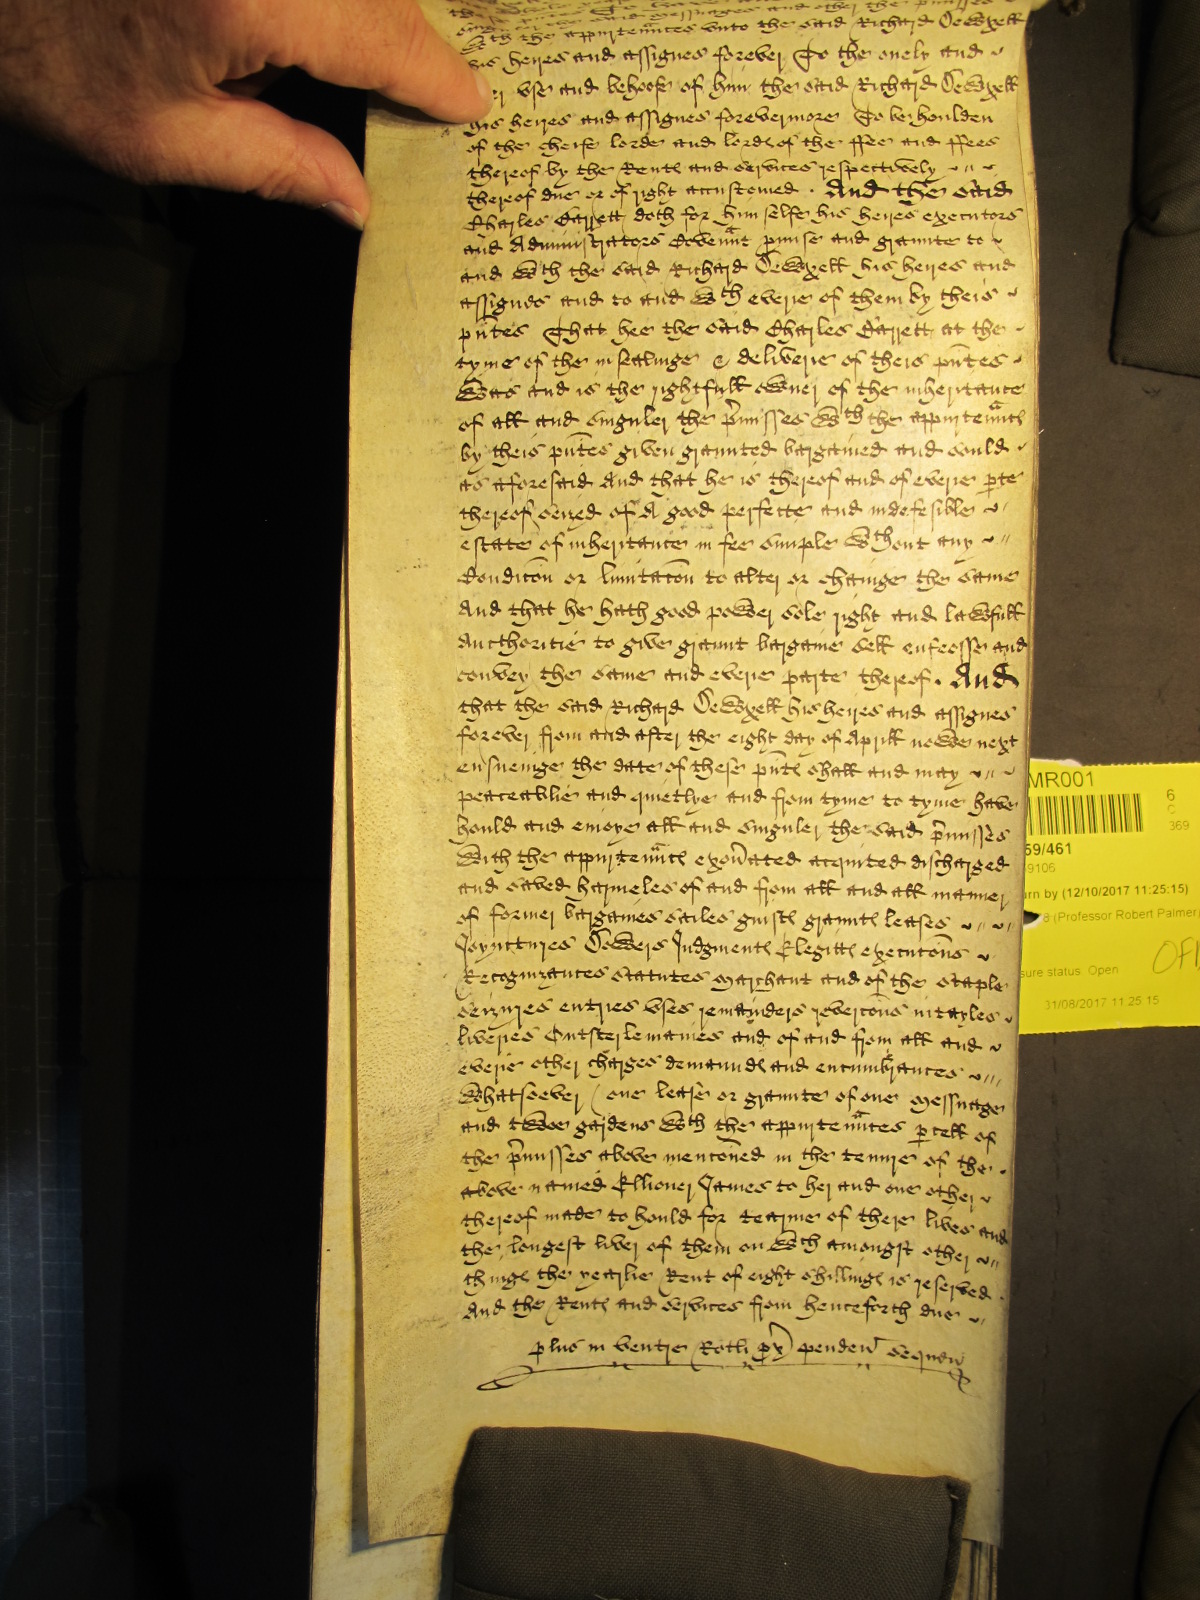 wth the appurtenñces unto the said Richard Sewxell
his heyres and assignes forever To the onely and
use and behoofe of him the said Richard Sewxell
his heyres and assignes forevermore To be houlden
of the cheife lorde and lordes of the ffee and ffees
thereof by the Rentes and services respectively
thereof due or of right accustomed. And the said
Charles Garrett doth for him selfe his heyres executors
and Administrators Coveñnt pmise and graunte to
and wth the said Richard Sewxell his heyres and
assignes and to and wth everie of them by theis
pñtes That hee the said Charles Garrett at the
tyme of the insealinge & deliverie of theis pñtes
Was and is the rightfull owner of the inheritance
of all and singuler the p̃misses wth the appurtenñces
by theis pñtes given graunted bargained and sould
as aforesaid And that he is thereof and of everie pte
thereof seized of A good perfecte and indefesible
estate of inheritance in fee simple wthout any
Condicõn or limitacõn to alter or chainge the same
And that he hath good power sole right and lawfull
Authoritie to give graunt bargaine sell enfeoffe and
convey the same and everie parte thereof. And
that the said Richard Sewxell his heyres and assignes
forever from and after the eight day of Aprill nowe next
ensueinge the date of these pñtes shall and may
peaceablie and quietlye and from tyme to tyme have
hould and enioye all and singuler the said p̃misses
With the appurtenñces exoñated acquited discharged
and saved harmeles of and from all and all manner
of former bargaines sailes guiftes grauntes leases
Joynctures Dowers Judgmentes Elegittes execucõns
Recognizances statutes Marchant and of the staple
seizures entries uses remaynders revercõns intayles
liveries Outsterlemaines and of and from all and
everie other charges demaundes and encumbrances
Whatsoever (one lease or graunte of one Messuage
and twoe gardens wth the appurtenñces pcell of
the p̃misses above menconed in the tenure of the
above named Ellioner James to her and one other
thereof made to hould for tearme of there lives and
the longest liver of them on wch amongst other
thinges the yearlie Rent of eight shillinges is reserved
And the Rentes and services from henceforth due
plus in ventre Rotli px̃ penden sequen
MR001
6
C
369
59/461
9106
urn by (12/10/2017 11:25:15)
8 (Professor Robert Palmer)
sure status Open
31/08/2017 11:25:15